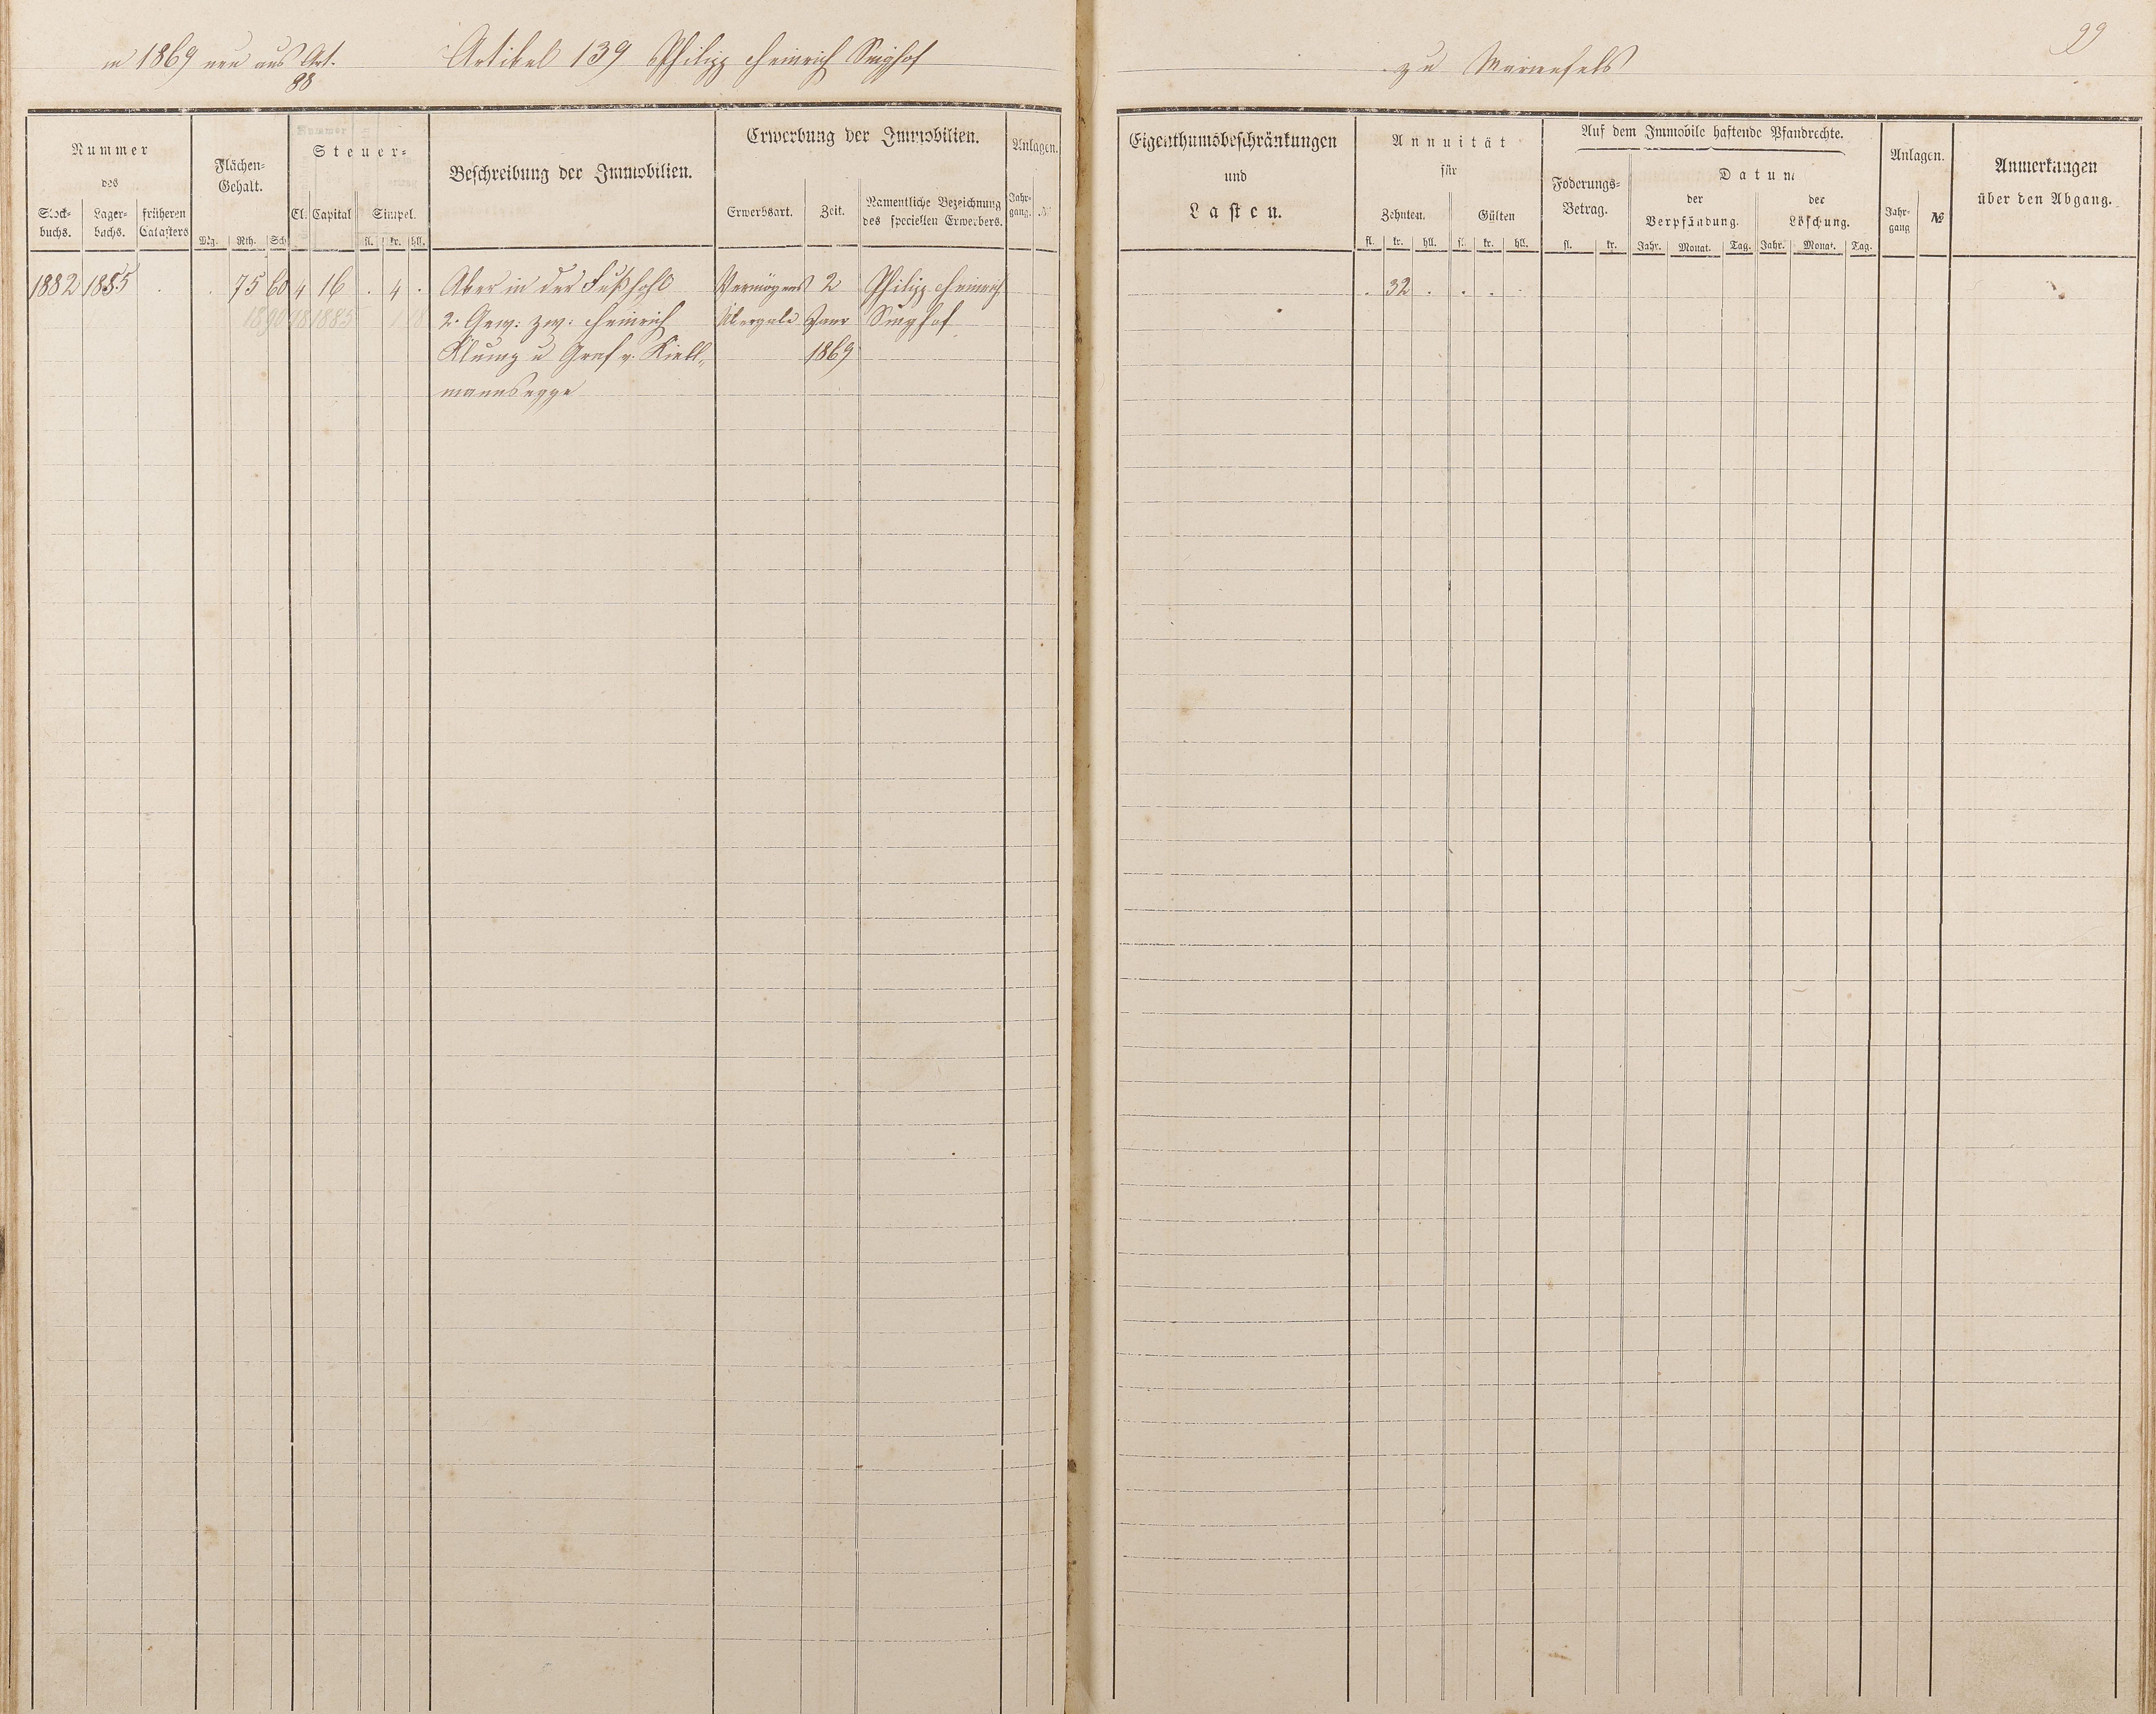 in 1869 neu aus Art.
88
Artikel 139 Philipp Heinrich Singhof
zu Marienfels
99
Nummer
des
Stock-
buchs.
Lager-
buchs.
früheren
Catasters
Flächen-
Gehalt.
Mg. Rth. Sch
Steuer-
Cl. Capital Simpel.
fl. kr. hll.
Beschreibung der Immobilien.
Erwerbung der Immobilien.
Erwerbsart. Zeit.
Namentliche Bezeichnung
des speciellen Erwerbers.
Anlagen.
Jahr-
gang. №
Eigenthumsbeschränkungen
und
Lasten.
Annuität
für
Zehnten. Gülten
fl. kr. hll. fl. kr. hll.
Auf dem Immobile haftende Pfandrechte.
Foderungs-
Betrag.
fl. kr.
Datum
der
Verpfändung.
der
Löschung.
Jahr. Monat. Tag. Jahr. Monat. Tag.
Anlagen.
Jahr-
gang №
Anmerkungen
über den Abgang.
1882 1885 . . 75 60 4 16 . 4 . Aker in der Fußhohl Vermögens 2 Philipp Heinrich . 32 . . . .
2. Gew: zw: Heinrich Übergabe Janr Singhof
Klump u Graf v. Kiell-
1869
mannsegge